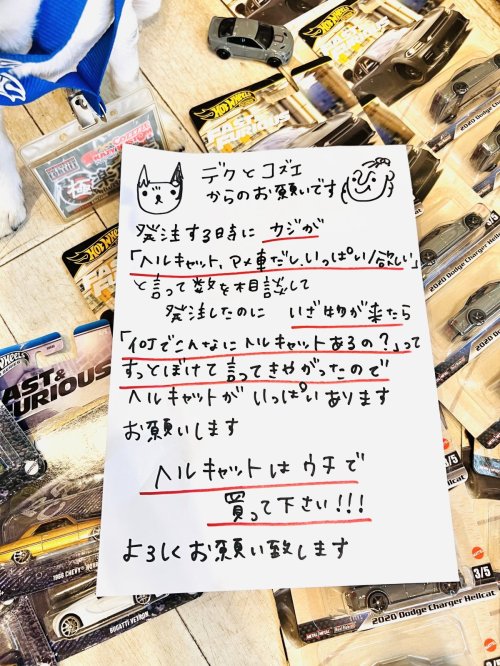 デクとコズエ
からのお願いです
発注する時に カジが
「ヘルキャット、アメ車だし、いっぱい欲しい」
と言って数を相談して
発注したのに いざ物が来たら
「何でこんなにヘルキャットあるの?」って
すっとぼけて言ってきやがったので
ヘルキャットが いっぱいあります
お願いします
ヘルキャットは ウチで
買って下さい!!!
よろしくお願い致します
HOT WHEELS
FAST & FURIOUS
HOT WHEELS
FAST & FURIOUS
2020 Dodge Charger Hellcat
2020 Dodge Charger Hellcat
2020 Dodge Charger Hellcat
3/5
BUGATTI VEYRON